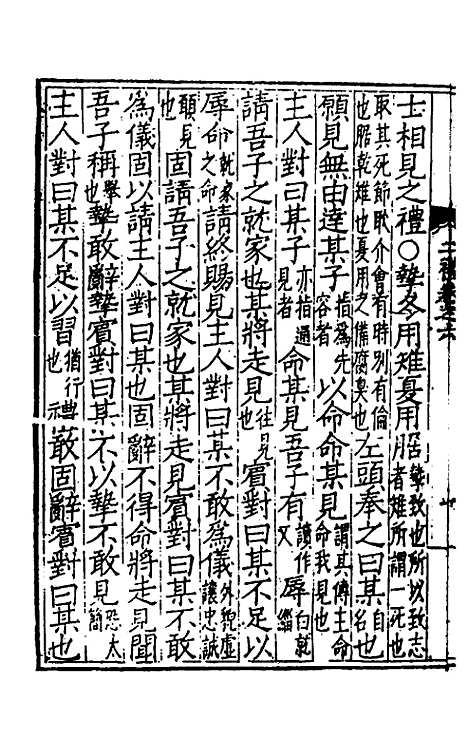 士相見之禮○摯冬用雉夏用腒摯致也所以致志者雉所謂一死也
取其死節耿介會有時別有倫也腒乾雉也夏用之備腐臭也左頭奉之曰某自名也
願見無由達某子指爲先容者以命命某見謂其傳主命命我見也
主人對曰某子亦指通見者命某見吾子有讀作又辱白就
請吾子之就家也某將走見往見也賓對曰某不足以
辱命就家之命請終賜見主人對曰某不敢爲儀外貌虛讓忠誠
願見也固請吾子之就家也某將走見賓對曰某不敢
爲儀固以請主人對曰某也固辭不得命將走見聞
吾子稱舉也摯敢辭摯賓對曰某不以摯不敢見恐太簡
主人對曰某不足以習猶行也禮敢固辭賓對曰某也